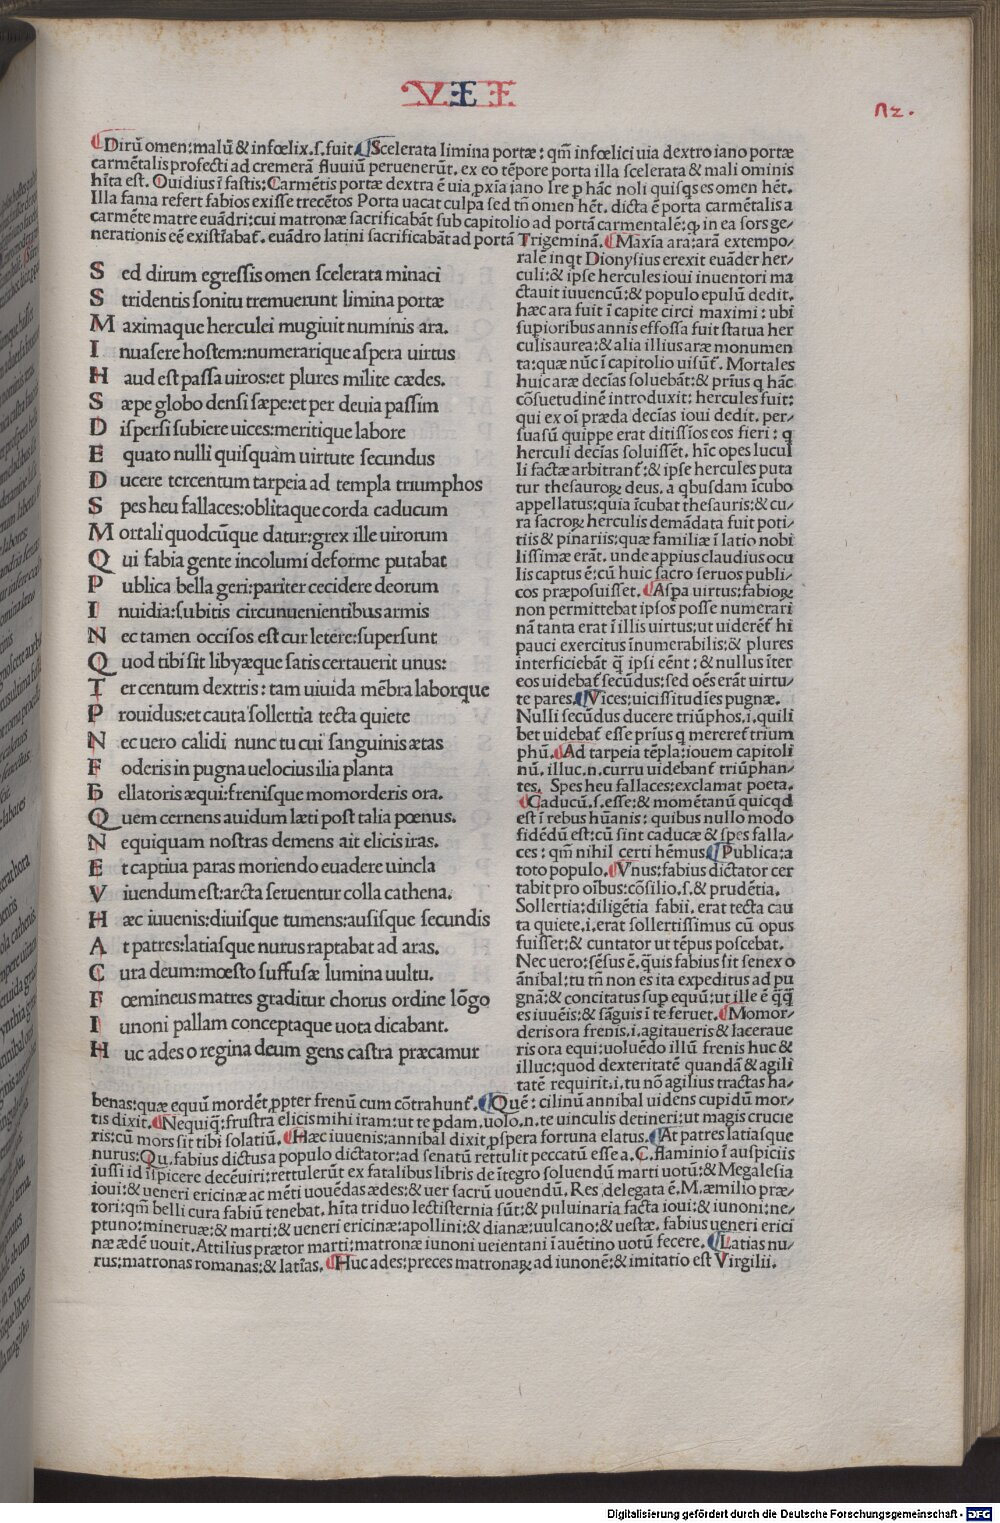 VII
n2.
Dirū omen: malū & infœlix. ſ. fuit Scelerata limina portæ: qm̄ infœlici uia dextro iano portæ
carmētalis profecti ad cremerā fluuiū peruenerūt. ex eo tēpore porta illa ſcelerata & mali ominis
hīta eſt. Ouidius ī faſtis: Carmētis portæ dextra ē uia ꝓxīa iano Ire ꝑ hāc noli quiſꝗs es omen hēt.
Illa fama refert fabios exiſſe trecētos Porta uacat culpa ſed tn̄ omen hēt. dicta ē porta carmētalis a
carmēte matre euādri: cui matronæ ſacrificabāt ſub capitolio ad portā carmentalē: ꝙ in ea ſors ge⸗
nerationis eē exiſtīabat̄. euādro latini ſacrificabāt ad portā Trigeminā. Maxīa ara: arā extempo⸗
S ed dirum egreſſis omen ſcelerata minaci
S tridentis ſonitu tremuerunt limina portæ
M aximaque herculei mugiuit numinis ara.
I nuaſere hoſtem: numerarique aſpera uirtus
H aud eſt paſſa uiros: et plures milite cædes.
S æpe globo denſi ſæpe: et per deuia paſſim
D iſperſi ſubiere uices: meritique labore
E quato nulli quiſquàm uirtute ſecundus
D ucere tercentum tarpeia ad templa triumphos
S pes heu fallaces: oblitaque corda caducum
M ortali quodcūque datur: grex ille uirorum
Q ui fabia gente incolumi deforme putabat
P ublica bella geri: pariter cecidere deorum
I nuidia: ſubitis circunuenientibus armis
N ec tamen occiſos eſt cur letere: ſuperſunt
Q uod tibi ſit libyæque ſatis certauerit unus:
T er centum dextris: tam uiuida mēbra laborque
P rouidus: et cauta ſollertia tecta quiete
N ec uero calidi nunc tu cui ſanguinis ætas
F oderis in pugna uelocius ilia planta
B ellatoris æqui: freniſque momorderis ora.
Q uem cernens auidum læti poſt talia pœnus.
N equiquam noſtras demens ait elicis iras.
E t captiua paras moriendo euadere uincla
V iuendum eſt: arcta ſeruentur colla cathena.
H æc iuuenis: diuiſque tumens: auſiſque ſecundis
A t patres: latiaſque nurus raptabat ad aras.
C ura deum: mœſto ſuffuſæ lumina uultu.
F œmineus matres graditur chorus ordine lōgo
I unoni pallam conceptaque uota dicabant.
H uc ades o regina deum gens caſtra præcamur
ralē inqt Dionyſius erexit euāder her⸗
culi: & ipſe hercules ioui inuentori ma
ctauit iuuencū: & populo epulū dedit.
hæc ara fuit ī capite circi maximi: ubi
ſupioribus annis effoſſa fuit ſtatua her
culis aurea: & alia illius aræ monumen
ta: quæ nūc ī capitolio uiſūt̄. Mortales
huic aræ decīas ſoluebāt: & prīus ꝗ hāc
cōſuetudinē introduxit: hercules fuit:
qui ex oī præda decīas ioui dedit. per⸗
ſuaſū quippe erat ditiſſīos eos fieri: ꝗ
herculi decīas ſoluiſſēt. hīc opes lucul
li factæ arbitrant̄: & ipſe hercules puta
tur theſauroꝝ deus. a ꝗbuſdam īcubo
appellatus: quia īcubat theſauris: & cu⸗
ra ſacroꝝ herculis demādata fuit poti⸗
tiis & pinariis: quæ familiæ ī latio nobi
liſſimæ erāt. unde appius claudius ocu
lis captus ē: cū huic ſacro ſeruos publi⸗
cos præpoſuiſſet. Aſpa uirtus: fabioꝝ
non permittebat ipſos poſſe numerari
nā tanta erat ī illis uirtus: ut uiderēt̄ hi
pauci exercitus īnumerabilis: & plures
interficiebāt ꝗ̄ ipſi eēnt: & nullus īter
eos uidebat̄ ſecūdus: ſed oēs erāt uirtu⸗
te pares. Vices: uiciſſitudīes pugnæ.
Nulli ſecūdus ducere triūphos. i. quili
bet uidebat̄ eſſe prīus ꝗ mereret̄ trium
phū. Ad tarpeia tēpla: iouem capitoli
nū. illuc. n. curru uidebant̄ triūphan⸗
tes. Spes heu fallaces: exclamat poeta.
Caducū. ſ. eſſe: & momētanū quicqd
eſt ī rebus hūanis: quibus nullo modo
fidēdū eſt: cū ſint caducæ & ſpes falla⸗
ces: qm̄ nihil certi hēmus Publica: a
toto populo. Vnus: fabius dictator cer
tabit pro oībus: cōſilio. ſ. & prudētia.
Sollertia: diligētia fabii. erat tecta cau
ta quiete. i. erat ſollertiſſimus cū opus
fuiſſet: & cuntator ut tēpus poſcebat.
Nec uero: ſēſus ē. ꝗuis fabius ſit ſenex o
ānibal: tu tn̄ non es ita expeditus ad pu
gnā: & concitatus ſup equū: ut ille ē ꝗ̄ꝗ̄
es iuuēis: & ſāguis ī te feruet. Momor⸗
deris ora frenis. i. agitaueris & laceraue
ris ora equi: uoluēdo illū frenis huc &
illuc: quod dexteritatē quandā & agili
tatē requirit. i. tu nō agilius tractas ha⸗
benas: quæ equū mordēt ꝓpter frenū cum cōtrahunt̄. Quē: cilinū annibal uidens cupidū mor⸗
tis dixit. Nequiꝗ̄: fruſtra elicis mihi iram: ut te ꝑdam. uolo. n. te uinculis detineri: ut magis crucie
ris: cū mors ſit tibi ſolatiū. Hæc iuuenis: annibal dixit ꝓſpera fortuna elatus. At patres latiaſque
nurus: Qu. fabius dictus a populo dictator: ad ſenatū rettulit peccatū eſſe a. C. flaminio ī auſpiciis
iuſſi id īſpicere decēuiri: rettulerūt ex fatalibus libris de ītegro ſoluendū marti uotū: & Megaleſia
ioui: & ueneri ericinæ ac mēti uouēdas ædes: & uer ſacrū uouendū. Res delegata ē. M. æmilio præ⸗
tori: qm̄ belli cura fabiū tenebat. hīta triduo lectiſternia ſūt: & puluinaria facta ioui: & iunoni: ne⸗
ptuno: mineruæ: & marti: & ueneri ericinæ: apollini: & dianæ: uulcano: & ueſtæ. fabius ueneri erici
næ ædē uouit. Attilius prætor marti: matronæ iunoni ueientani ī auētino uotū fecere. Latias nu⸗
rus: matronas romanas: & latīas. Huc ades: preces matronaꝝ ad iunonē: & imitatio eſt Virgilii.
Digitalisierung gefördert durch die Deutsche Forschungsgemeinschaft - DFG